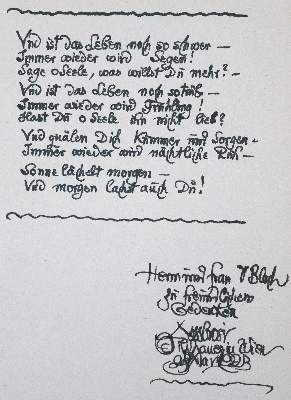 Und ist das Leben noch so schwer –
Immer wieder wird Segen!
Sage o Seele, was willst Du mehr? –
Und ist das Leben noch so trüb –
Immer wieder wird Frühling!
Hast Du o Seele ihn nicht lieb?
Und quälen Dich Kummer und Sorgen –
Immer wieder wird nächtliche Ruh –
Sonne lächelt morgen –
Und morgen lachst auch Du!
Herrn und Frau
zu freundlichem
Gedenken